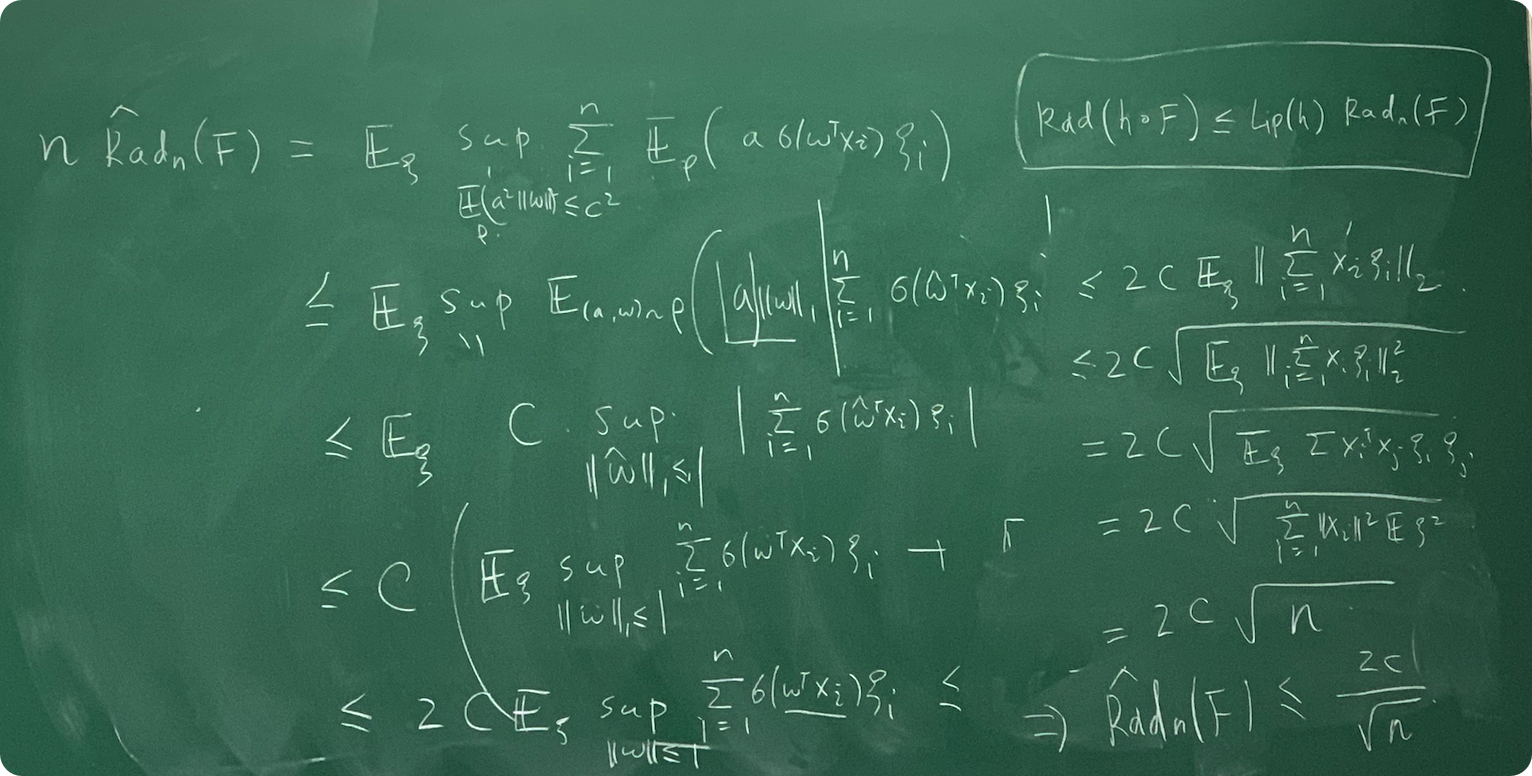 n R̂adₙ(F) = 𝔼_ξ sup_{𝔼_ρ(a²‖w‖²) ≤ C²} Σ_{i=1}^{n} 𝔼_ρ( a σ(wᵀxᵢ) ξᵢ )
≤ 𝔼_ξ sup_{\\} 𝔼_{(a,w)~ρ} ( |a|‖w‖₁ | Σ_{i=1}^{n} σ(ŵᵀxᵢ) ξᵢ |
≤ 𝔼_ξ C · sup_{‖ŵ‖₁≤1} | Σ_{i=1}^{n} σ(ŵᵀxᵢ) ξᵢ |
≤ C ( 𝔼_ξ sup_{‖w‖₁≤1} Σ_{i=1}^{n} σ(wᵀxᵢ) ξᵢ +
≤ 2 C 𝔼_ξ sup_{‖w‖≤1} Σ_{i=1}^{n} σ(wᵀxᵢ) ξᵢ ≤
Rad(h∘F) ≤ Lip(h) Radₙ(F)
≤ 2 C 𝔼_ξ ‖ Σ_{i=1}^{n} xᵢ ξᵢ ‖₂
≤ 2 C √( 𝔼_ξ ‖ Σ_{i=1}^{n} xᵢ ξᵢ ‖₂² )
= 2 C √( 𝔼_ξ Σ xᵢᵀxⱼ ξᵢ ξⱼ )
= 2 C √( Σ_{i=1}^{n} ‖xᵢ‖² 𝔼 ξ² )
= 2 C √n
⇒ R̂adₙ(F) ≤ 2C/√n